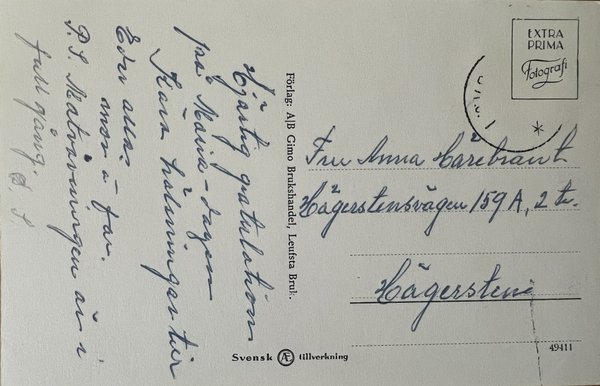 Hjärtlig gratulation
på Maria-dagen
Kära hälsningar till
Eder alla.
mor o far.
P.S. Matvävningen är i
full gång. D. S
Förlag: A/B Gimo Brukshandel, Leufsta Bruk.
EXTRA
PRIMA
Fotografi
Fru Anna
Hägerstensvägen 159 A, 2 tr.
Hägersten
Svensk Æ tillverkning
49411